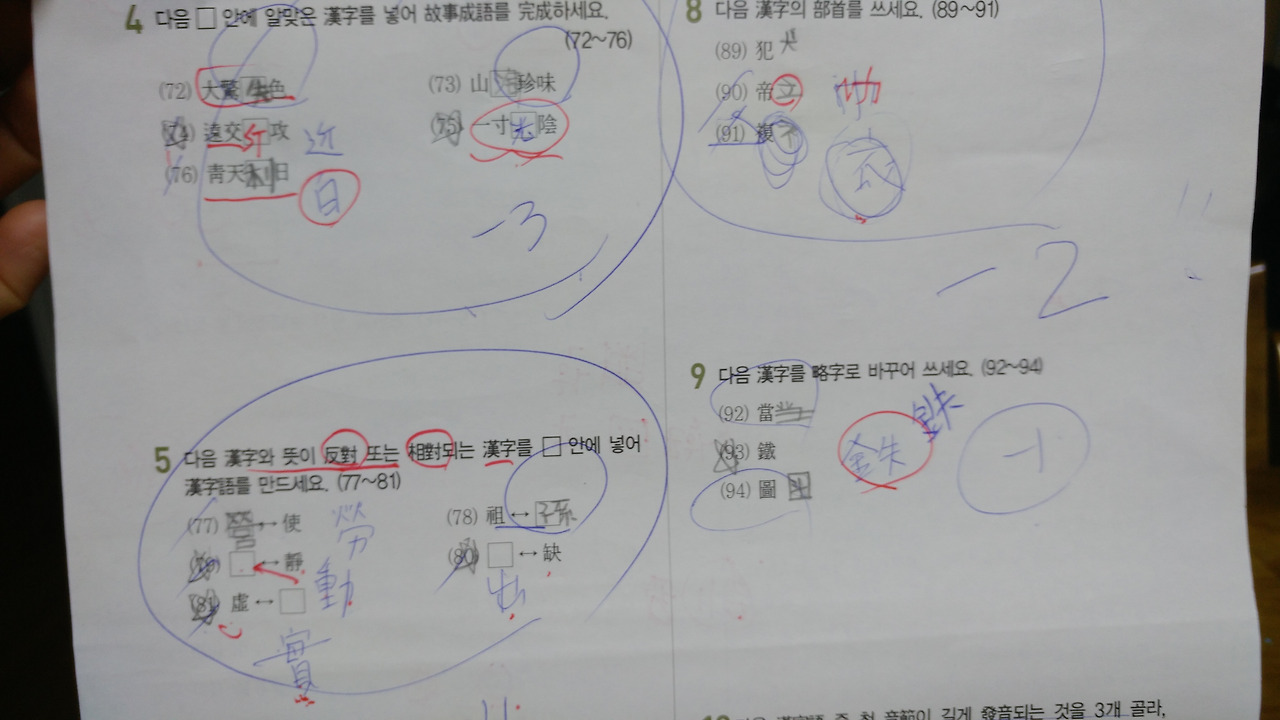 4 다음 □ 안에 알맞은 漢字를 넣어 故事成語를 完成하세요.
(72~76)
(72) 大驚失色 (73) 山海珍味
(74) 遠交 攻 近 (75) 一寸光陰
(76) 靑天 日 白
-3
5 다음 漢字와 뜻이 反對 또는 相對되는 漢字를 □ 안에 넣어
漢字語를 만드세요. (77~81)
(77) ↔ 使 勞 (78) 祖 ↔ 孫
(79) □ ↔ 靜 動 (80) □ ↔ 缺 出
(81) 虛 ↔ □
實
8 다음 漢字의 部首를 쓰세요. (89~91)
(89) 犯 犬
(90) 帝 立 巾
(91) 複 衣
-2
9 다음 漢字를 略字로 바꾸어 쓰세요. (92~94)
(92) 當 当
(93) 鐵 鉄 鉄
(94) 圖 図
-1
다음 漢字語 중 첫 音節이 길게 發音되는 것을 3개 골라,